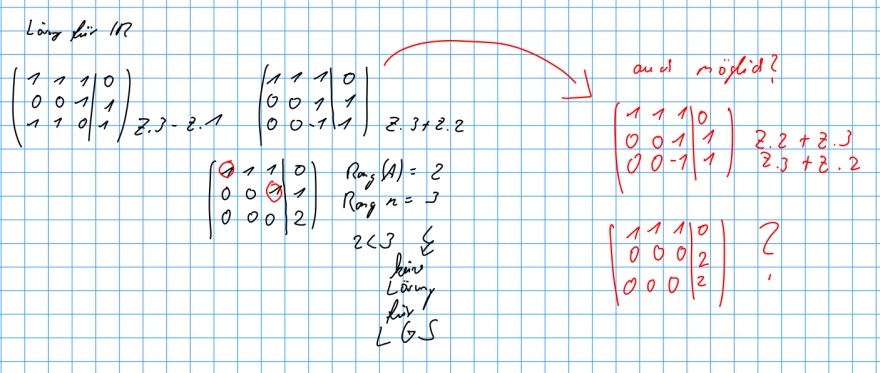 Lösung für IR
1 1 1 | 0
0 0 1 | 1
1 1 0 | 1 Z.3 - Z.1
1 1 1 | 0
0 0 1 | 1
0 0 -1 | 1 Z.3 + Z.2
1 1 1 | 0
0 0 1 | 1
0 0 0 | 2
Rang(A) = 2
Rang n = 3
2 < 3
keine
Lösung
für
LGS
auch möglich?
1 1 1 | 0
0 0 1 | 1 Z.2 + Z.3
0 0 -1 | 1 Z.3 + Z.2
1 1 1 | 0
0 0 0 | 2
0 0 0 | 2
?